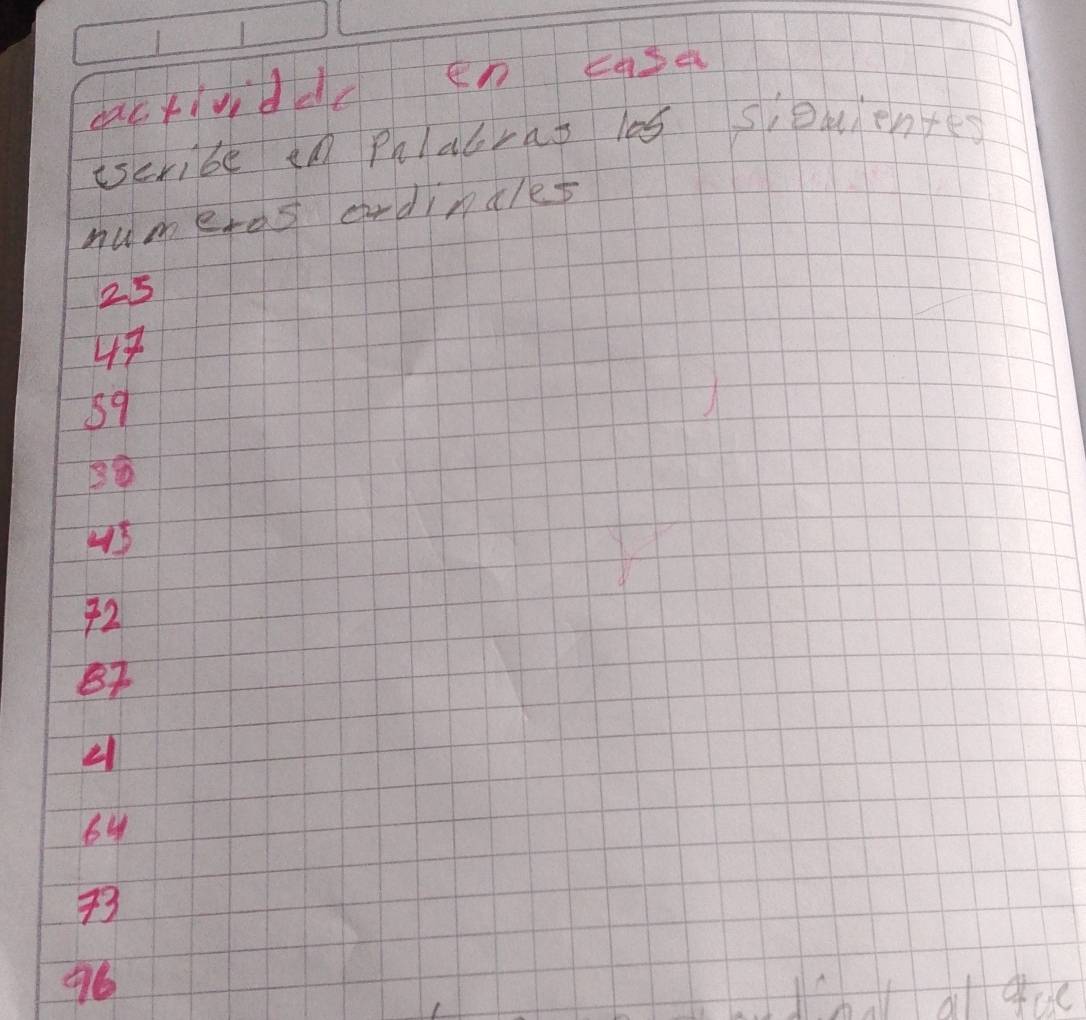 actividdc en casa
escribe en Palabras los siguientes
numeros ordinales
25
47
59
38
45
72
87
41
64
73
96
al que